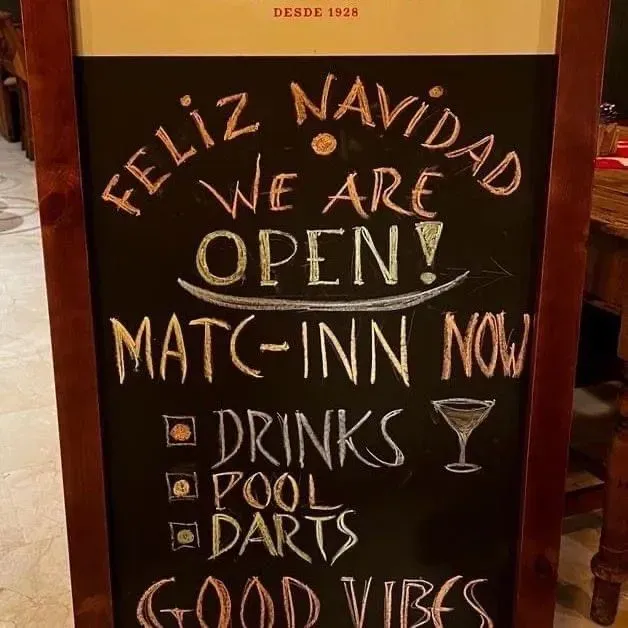 DESDE 1928
FELIZ NAVIDAD
WE ARE
OPEN!
MATC-INN NOW
DRINKS
POOL
DARTS
GOOD VIBES